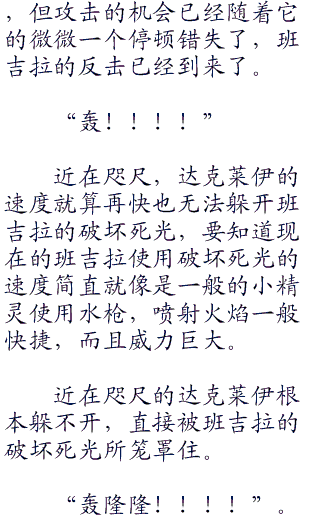 ，但攻击的机会已经随着它
的微微一个停顿错失了，班
吉拉的反击已经到来了。
“轰！！！！”
近在咫尺，达克莱伊的
速度就算再快也无法躲开班
吉拉的破坏死光，要知道现
在的班吉拉使用破坏死光的
速度简直就像是一般的小精
灵使用水枪，喷射火焰一般
快捷，而且威力巨大。
近在咫尺的达克莱伊根
本躲不开，直接被班吉拉的
破坏死光所笼罩住。
“轰隆隆！！！！”。